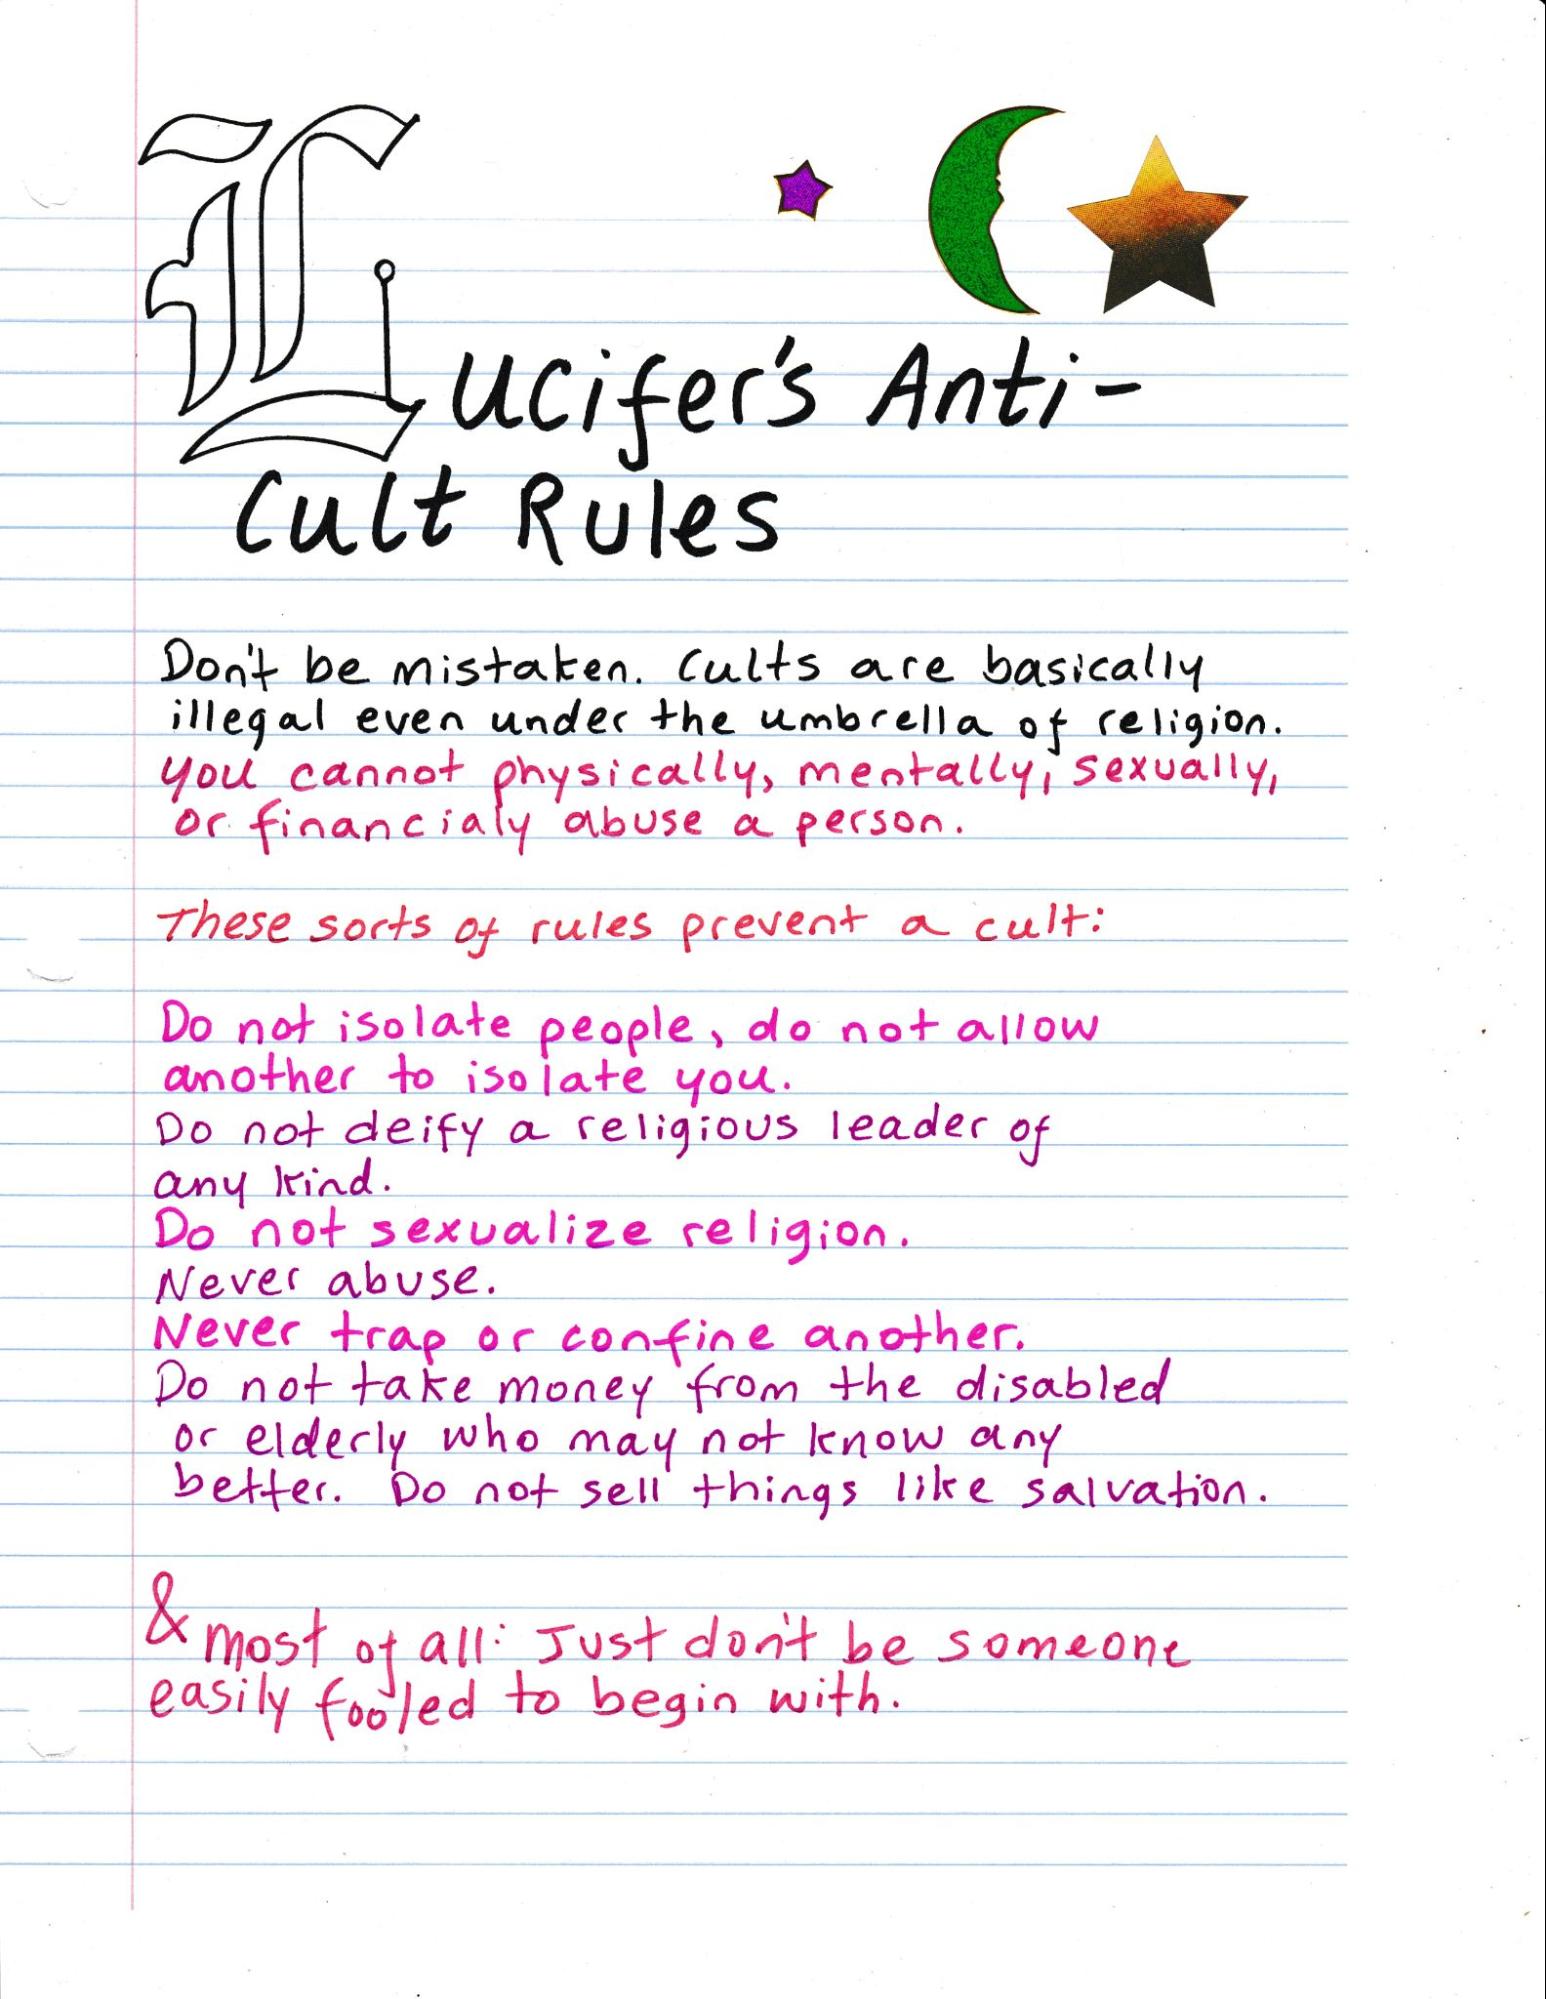 Lucifer's Anti-
Cult Rules
Don't be mistaken. Cults are basically
illegal even under the umbrella of religion.
You cannot physically, mentally, sexually,
or financialy abuse a person.
These sorts of rules prevent a cult:
Do not isolate people, do not allow
another to isolate you.
Do not deify a religious leader of
any kind.
Do not sexualize religion.
Never abuse.
Never trap or confine another.
Do not take money from the disabled
or elderly who may not know any
better. Do not sell things like salvation.
& most of all: Just don't be someone
easily fooled to begin with.